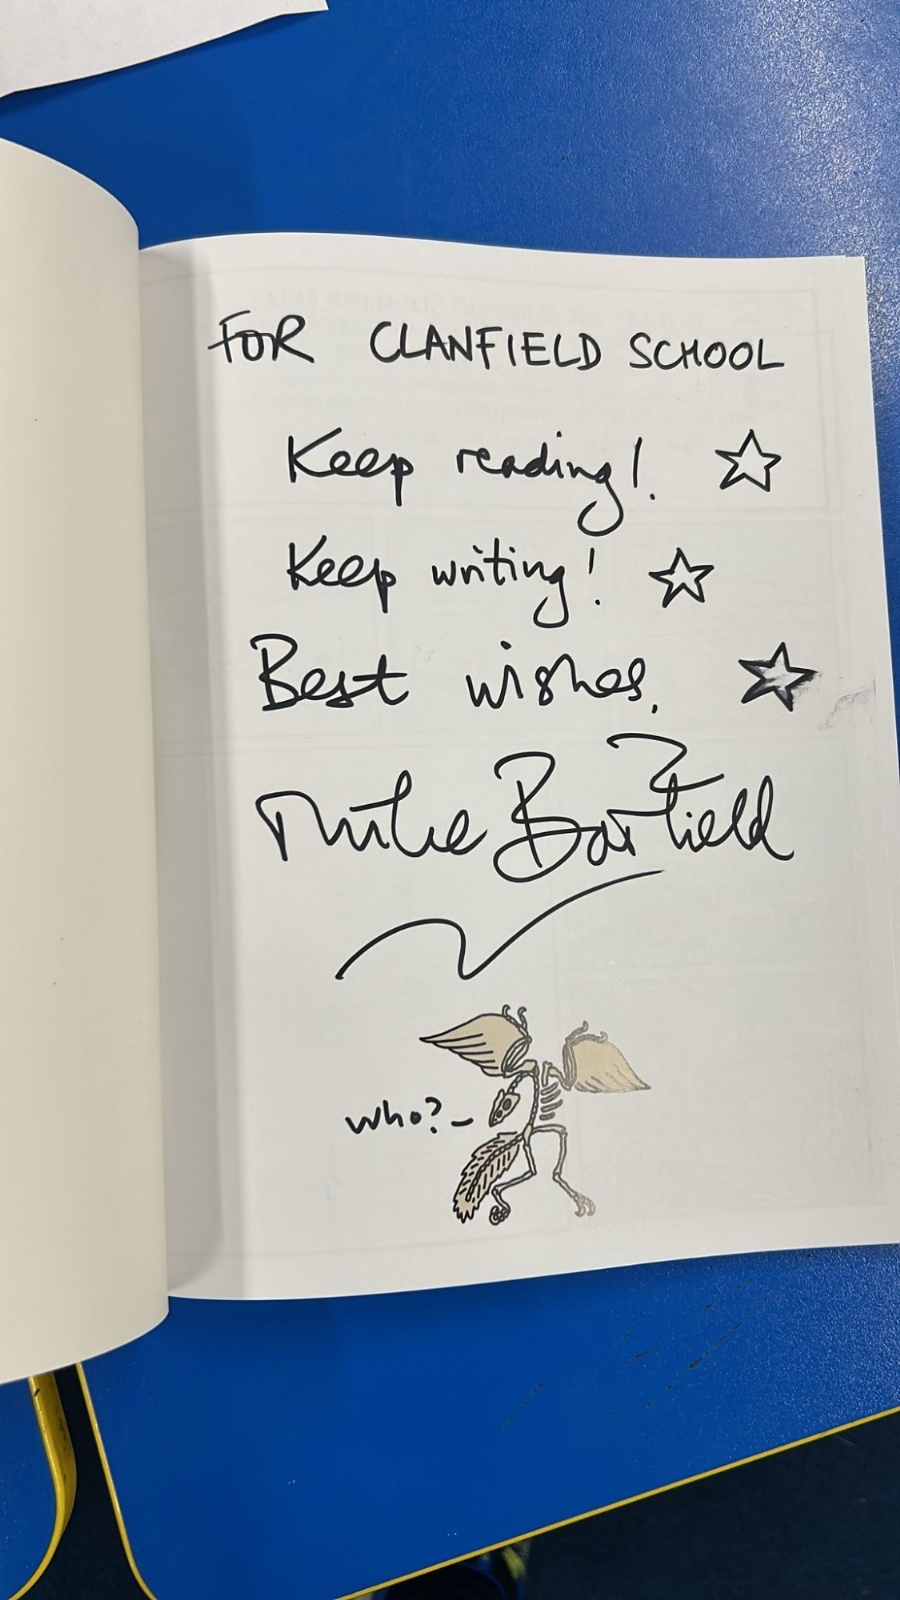 FOR CLANFIELD SCHOOL
Keep reading!
Keep writing!
Best wishes,
Mike Barfield
who?